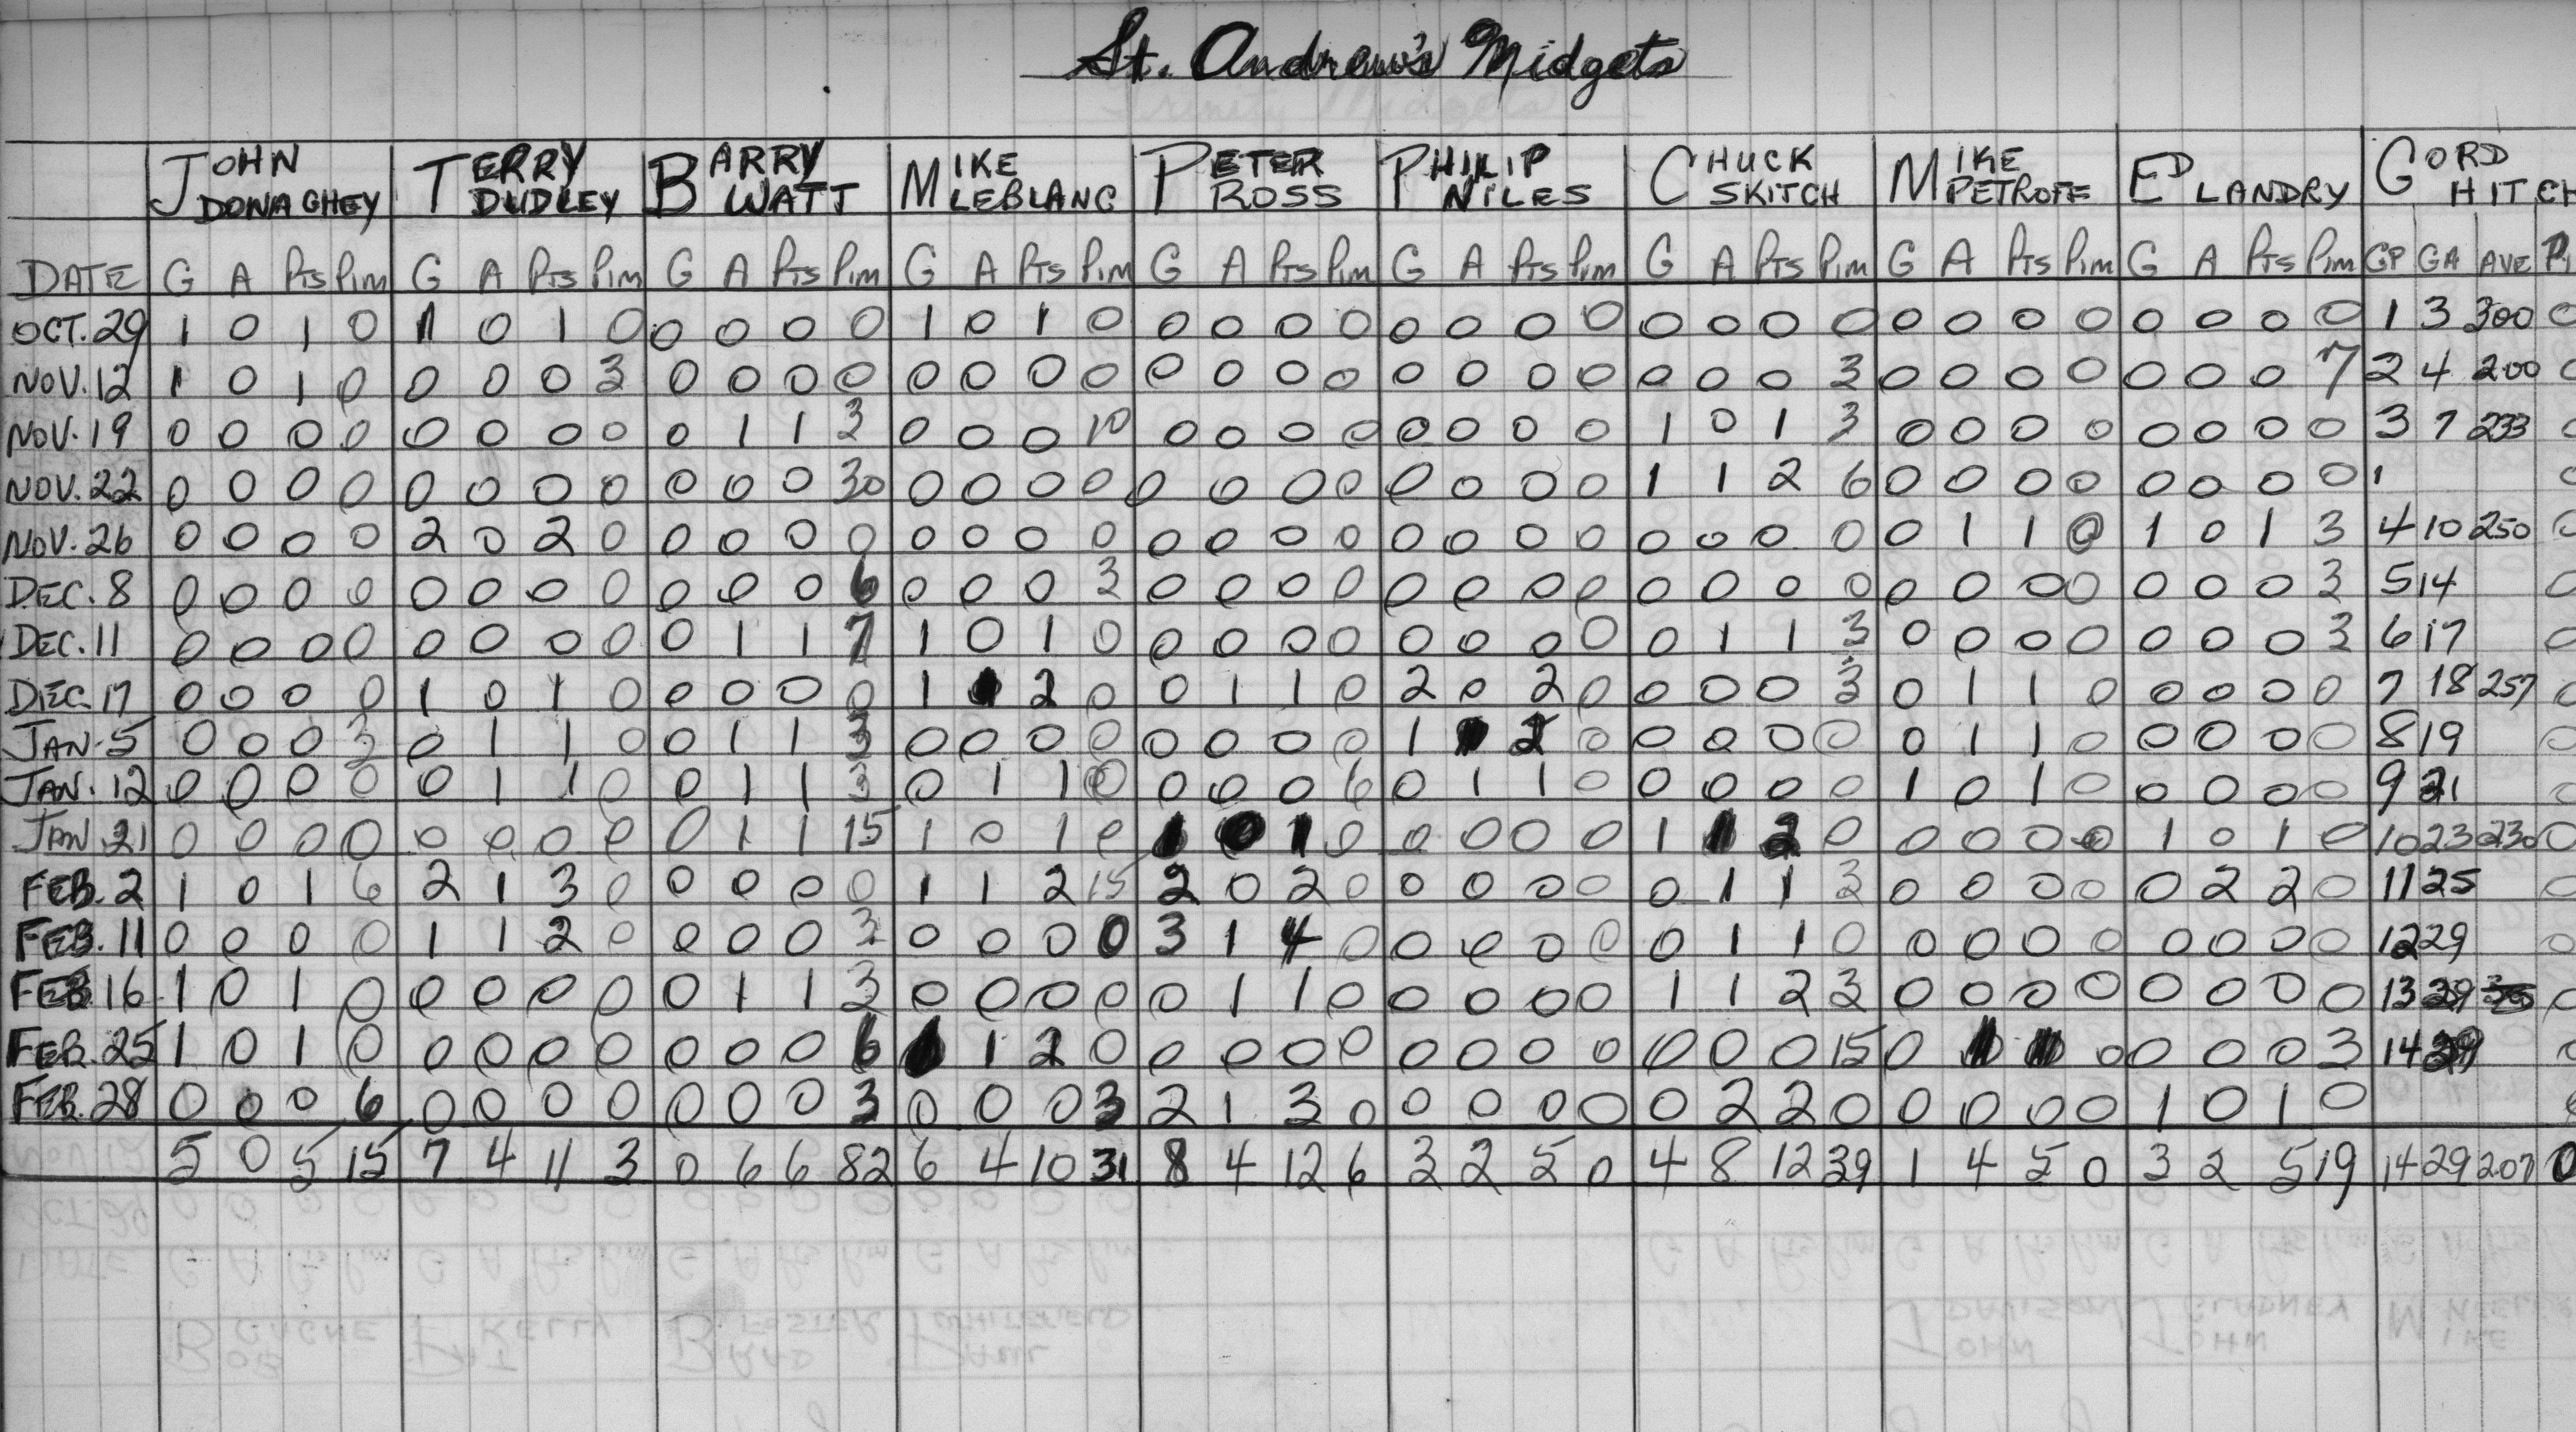 St. Andrew's Midgets
JOHN DONAGHEY TERRY DUDLEY BARRY WATT MIKE LEBLANC PETER ROSS PHILIP NILES CHUCK SKITCH MIKE PETROFF ED LANDRY GORD HITCH
DATE G A Pts Pim G A Pts Pim G A Pts Pim G A Pts Pim G A Pts Pim G A Pts Pim G A Pts Pim G A Pts Pim G A Pts Pim GP GA AVE Pi
OCT. 29 1 0 1 0 1 0 1 0 0 0 0 0 1 0 1 0 0 0 0 0 0 0 0 0 0 0 0 0 0 0 0 0 0 0 0 0 1 3 300 0
NOV. 12 1 0 1 0 0 0 0 3 0 0 0 0 0 0 0 0 0 0 0 0 0 0 0 0 0 0 0 3 0 0 0 0 0 0 0 7 2 4 200 0
NOV. 19 0 0 0 0 0 0 0 0 0 1 1 3 0 0 0 10 0 0 0 0 0 0 0 0 1 0 1 3 0 0 0 0 0 0 0 0 3 7 233 0
NOV. 22 0 0 0 0 0 0 0 0 0 0 0 30 0 0 0 0 0 0 0 0 0 0 0 0 1 1 2 6 0 0 0 0 0 0 0 0 1 0
NOV. 26 0 0 0 0 2 0 2 0 0 0 0 0 0 0 0 0 0 0 0 0 0 0 0 0 0 0 0 0 0 1 1 0 1 0 1 3 4 10 250 0
DEC. 8 0 0 0 0 0 0 0 0 0 0 0 6 0 0 0 3 0 0 0 0 0 0 0 0 0 0 0 0 0 0 0 0 0 0 0 3 5 14 0
DEC. 11 0 0 0 0 0 0 0 0 0 1 1 7 1 0 1 0 0 0 0 0 0 0 0 0 0 1 1 3 0 0 0 0 0 0 0 3 6 17 0
DEC. 17 0 0 0 0 1 0 1 0 0 0 0 0 1 1 2 0 0 1 1 0 2 0 2 0 0 0 0 3 0 1 1 0 0 0 0 0 7 18 257 0
JAN. 5 0 0 0 3 0 1 1 0 0 1 1 3 0 0 0 0 0 0 0 0 1 2 0 0 0 0 0 0 1 1 0 0 0 0 0 8 19 0
JAN. 12 0 0 0 0 0 1 1 0 0 1 1 3 0 1 1 0 0 0 0 6 0 1 1 0 0 0 0 0 1 0 1 0 0 0 0 0 9 21 0
JAN. 21 0 0 0 0 0 0 0 0 0 1 1 15 1 0 1 0 1 0 1 0 0 0 0 0 1 1 2 0 0 0 0 0 1 0 1 0 10 23 230 0
FEB. 2 1 0 1 6 2 1 3 0 0 0 0 0 1 1 2 15 2 0 2 0 0 0 0 0 0 1 1 3 0 0 0 0 0 2 2 0 11 25 0
FEB. 11 0 0 0 0 1 1 2 0 0 0 0 3 0 0 0 0 3 1 4 0 0 0 0 0 0 1 1 0 0 0 0 0 0 0 0 0 12 29 0
FEB. 16 1 0 1 0 0 0 0 0 0 1 1 3 0 0 0 0 0 1 1 0 0 0 0 0 1 1 2 3 0 0 0 0 0 0 0 0 13 29 0
FEB. 25 1 0 1 0 0 0 0 0 0 0 0 6 1 2 0 0 0 0 0 0 0 0 0 0 0 0 15 0 0 0 0 0 3 14 29 0
FEB. 28 0 0 0 6 0 0 0 0 0 0 0 3 0 0 0 3 2 1 3 0 0 0 0 0 0 2 2 0 0 0 0 0 1 0 1 0
5 0 5 15 7 4 11 3 0 6 6 82 6 4 10 31 8 4 12 6 3 2 5 0 4 8 12 39 1 4 5 0 3 2 5 19 14 29 207 0